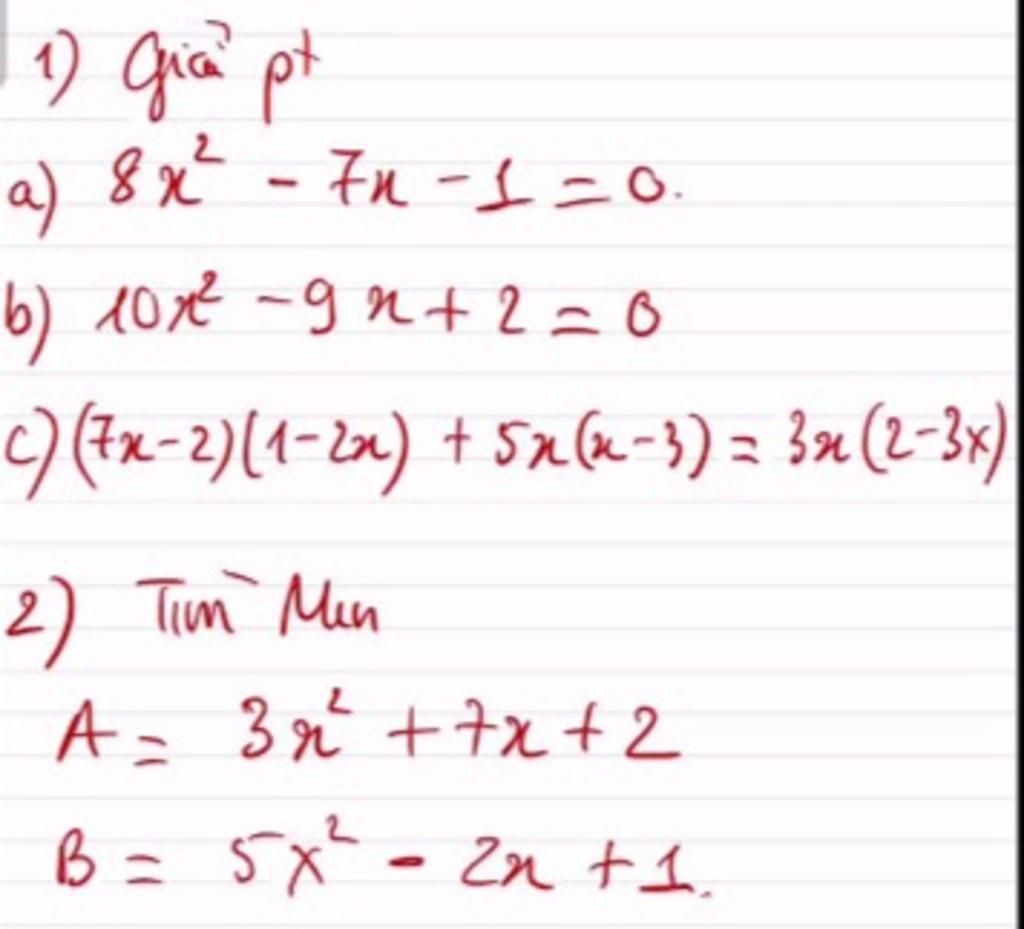 1) Giải pt
a) 8x² - 7x - 1 = 0.
b) 10x² - 9x + 2 = 0
c) (7x-2)(1-2x) + 5x(x-3) = 3x(2-3x)
2) Tìm Min
A = 3x² + 7x + 2
B = 5x² - 2x + 1.